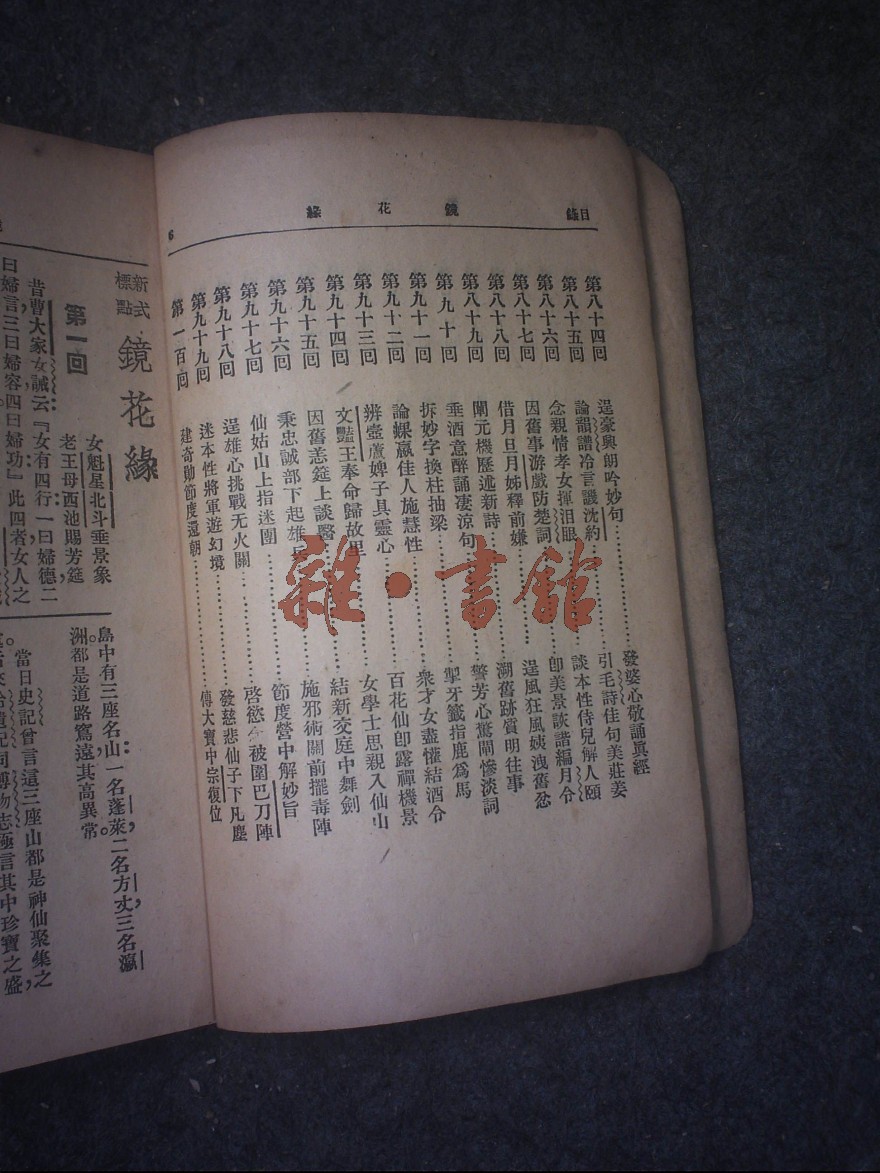 日錄
鏡花緣
6
第八十四回 逞豪興朗吟妙句⋯⋯發婆心敬誦眞經
第八十五回 論韻譜冷言譏沈約⋯⋯引毛詩佳句美莊姜
第八十六回 念親情孝女揮泪眼⋯⋯談本性侍兒解人頤
第八十七回 因舊事游戲仿楚詞⋯⋯卽美景詼諧編月令
第八十八回 借月旦月姊釋前嫌⋯⋯逞風狂風姨洩舊忿
第八十九回 闡元機歷述新詩⋯⋯溯舊跡質明往事
第九十回 垂酒意醉誦凄涼句⋯⋯警芳心驚聞慘淡詞
第九十一回 拆妙字換柱抽梁⋯⋯掣牙籤指鹿爲馬
第九十二回 論蜾蠃佳人施慧性⋯⋯衆才女盡懽結酒令
第九十三回 辨壺蘆婢子具靈心⋯⋯百花仙卽露禪機景
第九十四回 文豔王奉命歸故里⋯⋯女學士思親入仙山
第九十五回 因舊恙筵上談醫⋯⋯結新交庭中舞劍
第九十六回 秉忠誠部下起雄⋯⋯施邪術關前擺毒陣
第九十七回 仙姑山上指迷團⋯⋯節度營中解妙旨
第九十八回 逞雄心挑戰无火關⋯⋯啓慾念被圍巴刀陣
第九十九回 迷本性將軍遊幻境⋯⋯發慈悲仙子下凡塵
第一百回 建奇勛節度還朝⋯⋯傳大寶中宗復位
雜·書館
新式標點 鏡花緣
第一回 女魁星北斗垂景象
老王母西池賜芳筵
昔曹大家女誡云:『女有四行:一曰婦德二
曰婦言三曰婦容四曰婦功』此四者女人之
島中有三座名山:一名蓬萊,二名方丈,三名瀛
洲。都是道路窵遠其高異常。
當日史記曾言這三座山都是神仙聚集之
拾遺記同博物志極言其中珍寶之盛